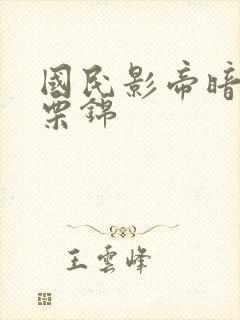 國民影帝暗
栗錦
王雲峰